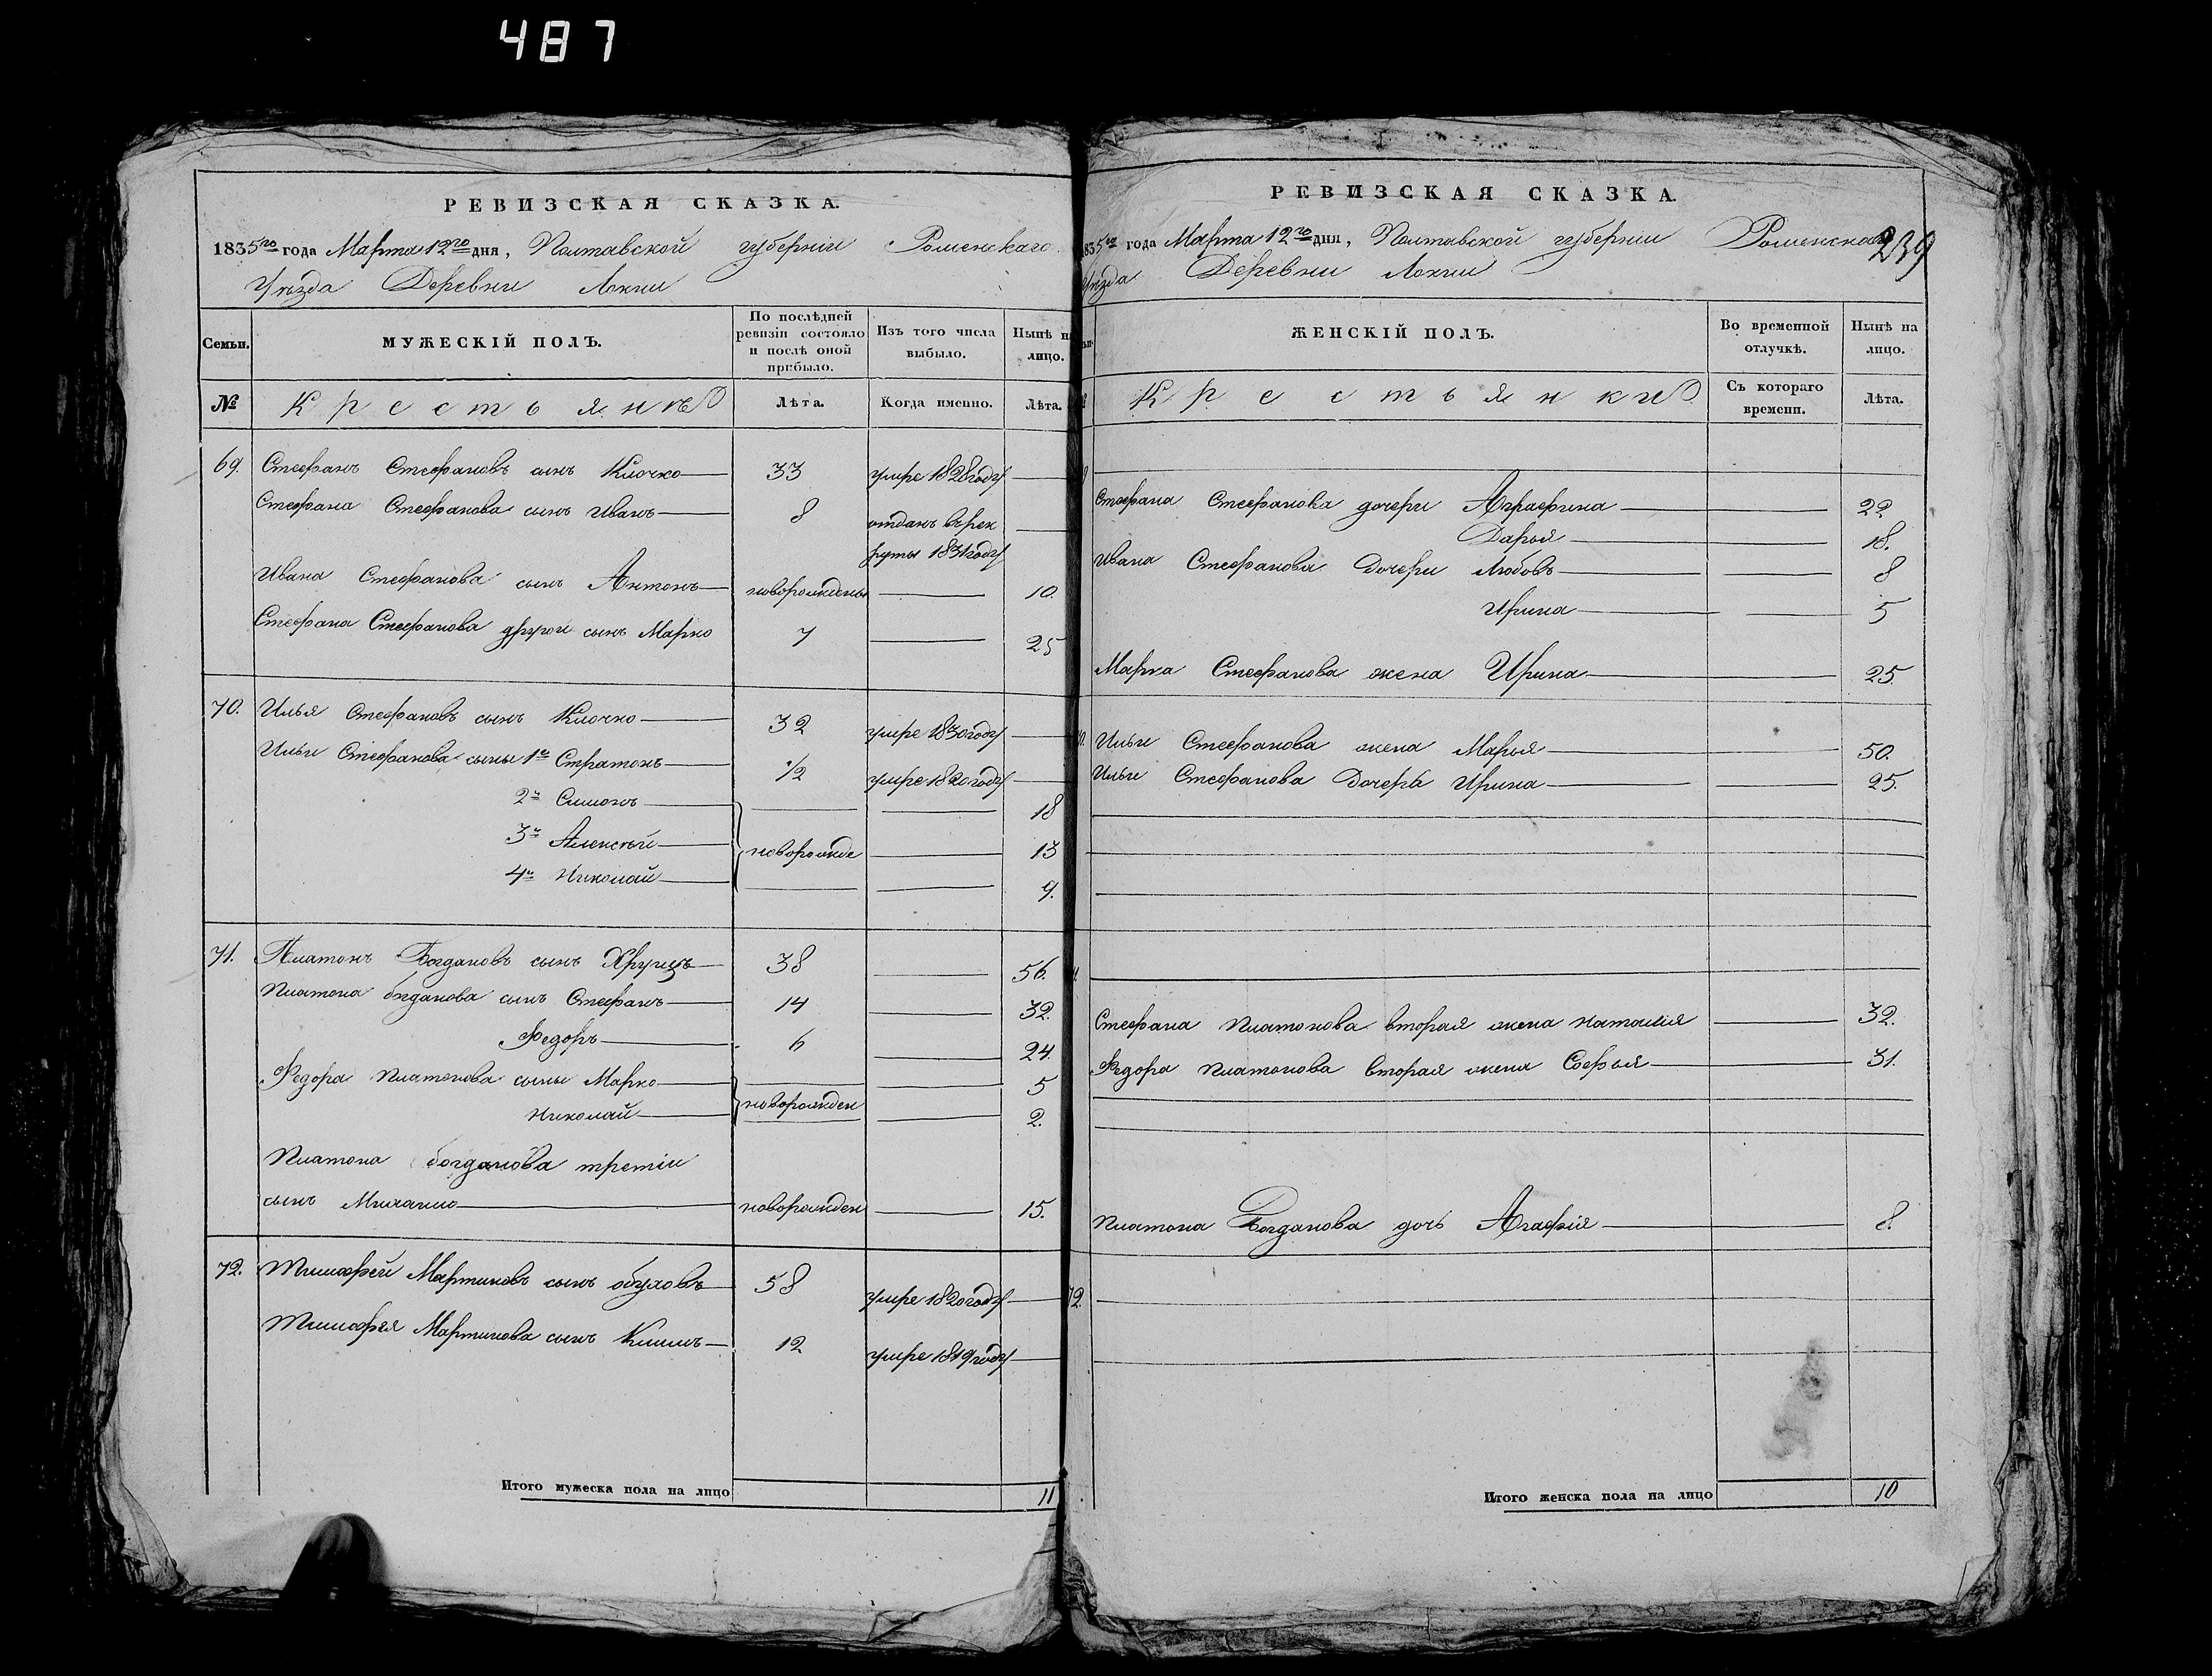 487
РЕВИЗСКАЯ СКАЗКА.
1835го года Марта 12го дня, Полтавской губернiи Роменскаго
Уѣзда Деревни Локни
Семьи. МУЖЕСКIЙ ПОЛЪ. По послѣдней ревизiи состояло и послѣ оной прибыло. Изъ того числа выбыло. Нынѣ на лицо.
№ Крестьянъ Лѣта. Когда именно. Лѣта.
69. Стефанъ Стефановъ сынъ Клочко 33 умре 1828 году
Стефана Стефанова сынъ Иванъ 8 отданъ въ рек
руты 1831 году
Ивана Стефанова сынъ Антонъ новорожденъ 10.
Стефана Стефанова другой сынъ Марко 7 25
70. Илья Стефановъ сынъ Клочко 32 умре 1830 году
Ильи Стефанова сыны 1й Стратонъ 1/2 умре 1820 году
2й Симонъ 18
3й Алексѣй новорожде 13
4й Николай 9.
71. Платонъ Богдановъ сынъ 38 56.
Платона богданова сынъ Стефанъ 14 32.
Федоръ 6 24.
Федора Платонова сыны Марко 5
Николай новорожден 2.
Платона богданова третiи
сынъ Михаило новорожден 15.
72. Тимофей Мартиновъ сынъ обуховъ 58 умре 1820 году
Тимофея Мартинова сынъ Климъ 12 умре 1819 году
Итого мужеска пола на лицо 11
РЕВИЗСКАЯ СКАЗКА.
1835го года Марта 12го дня, Полтавской губернiи Роменскаго 239
Уѣзда Деревни Локни
ЖЕНСКIЙ ПОЛЪ. Во временной отлучкѣ. Нынѣ на лицо.
Крестьянки Съ котораго времени. Лѣта.
Стефана Стефанова дочери Аграфина 22
Дарья 18.
Ивана Стефанова Дочери Любовъ 8
Ирина 5
Марка Стефанова жена Ирина 25.
Ильи Стефанова жена Марья 50.
Ильи Стефанова Дочерь Ирина 25.
Стефана Платонова вторая жена наталiя 32.
Федора Платонова Вторая жена Софья 31.
Платона Богданова дочь Агафiя 8.
72.
Итого женска пола на лицо 10